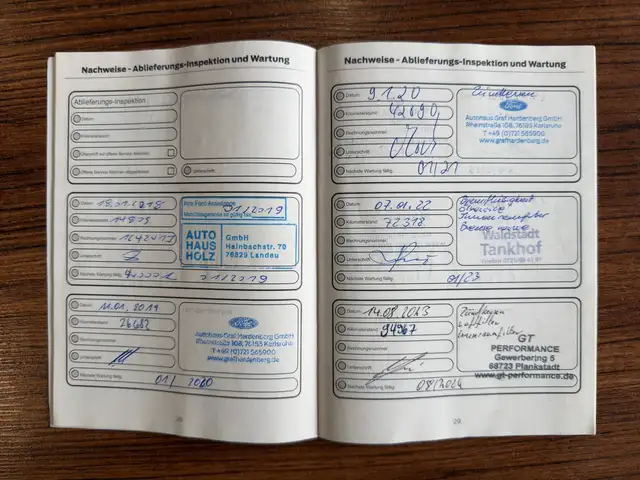 Nachweise - Ablieferungs-Inspektion und Wartung
Ablieferungs-Inspektion
Datum
Kilometerstand
Unterschrift
Datum 18.01.2018
Ihre Ford Assistance
01/2019
AUTO
HAUS
HOLZ
GmbH
Hainbachstr. 70
76829 Landau
Unterschrift
Nächste Wartung fällig 01/2019
Datum 11.01.2019
Kilometerstand 26682
Ford
Autohaus Graf Hardenberg GmbH
Rheinstraße 108, 76185 Karlsruhe
T +49 (0)721 565900
www.grafhardenberg.de
Unterschrift
Nächste Wartung fällig 01/2020
Nachweise - Ablieferungs-Inspektion und Wartung
Datum 9.1.20
Zündkerzen
Kilometerstand
Ford
Autohaus Graf Hardenberg GmbH
Rheinstraße 108, 76185 Karlsruhe
T +49 (0)721 565900
www.grafhardenberg.de
Rechnungsnummer
Unterschrift
Nächste Wartung fällig 01/21
Datum 07.01.22
Bremsflüssigkeit
Ölservice
Innenraumfilter
Kilometerstand 72318
Waldstadt
Tankhof
Rechnungsnummer
Unterschrift
Nächste Wartung fällig 01/23
Datum 14.08.2023
Zündkerzen
Luftfilter
Innenraumfilter
Kilometerstand 94967
GT
PERFORMANCE
Gewerbering 5
68723 Plankstadt
www.gt-performance.de
Rechnungsnummer
Unterschrift
Nächste Wartung fällig 08/2024
28
29